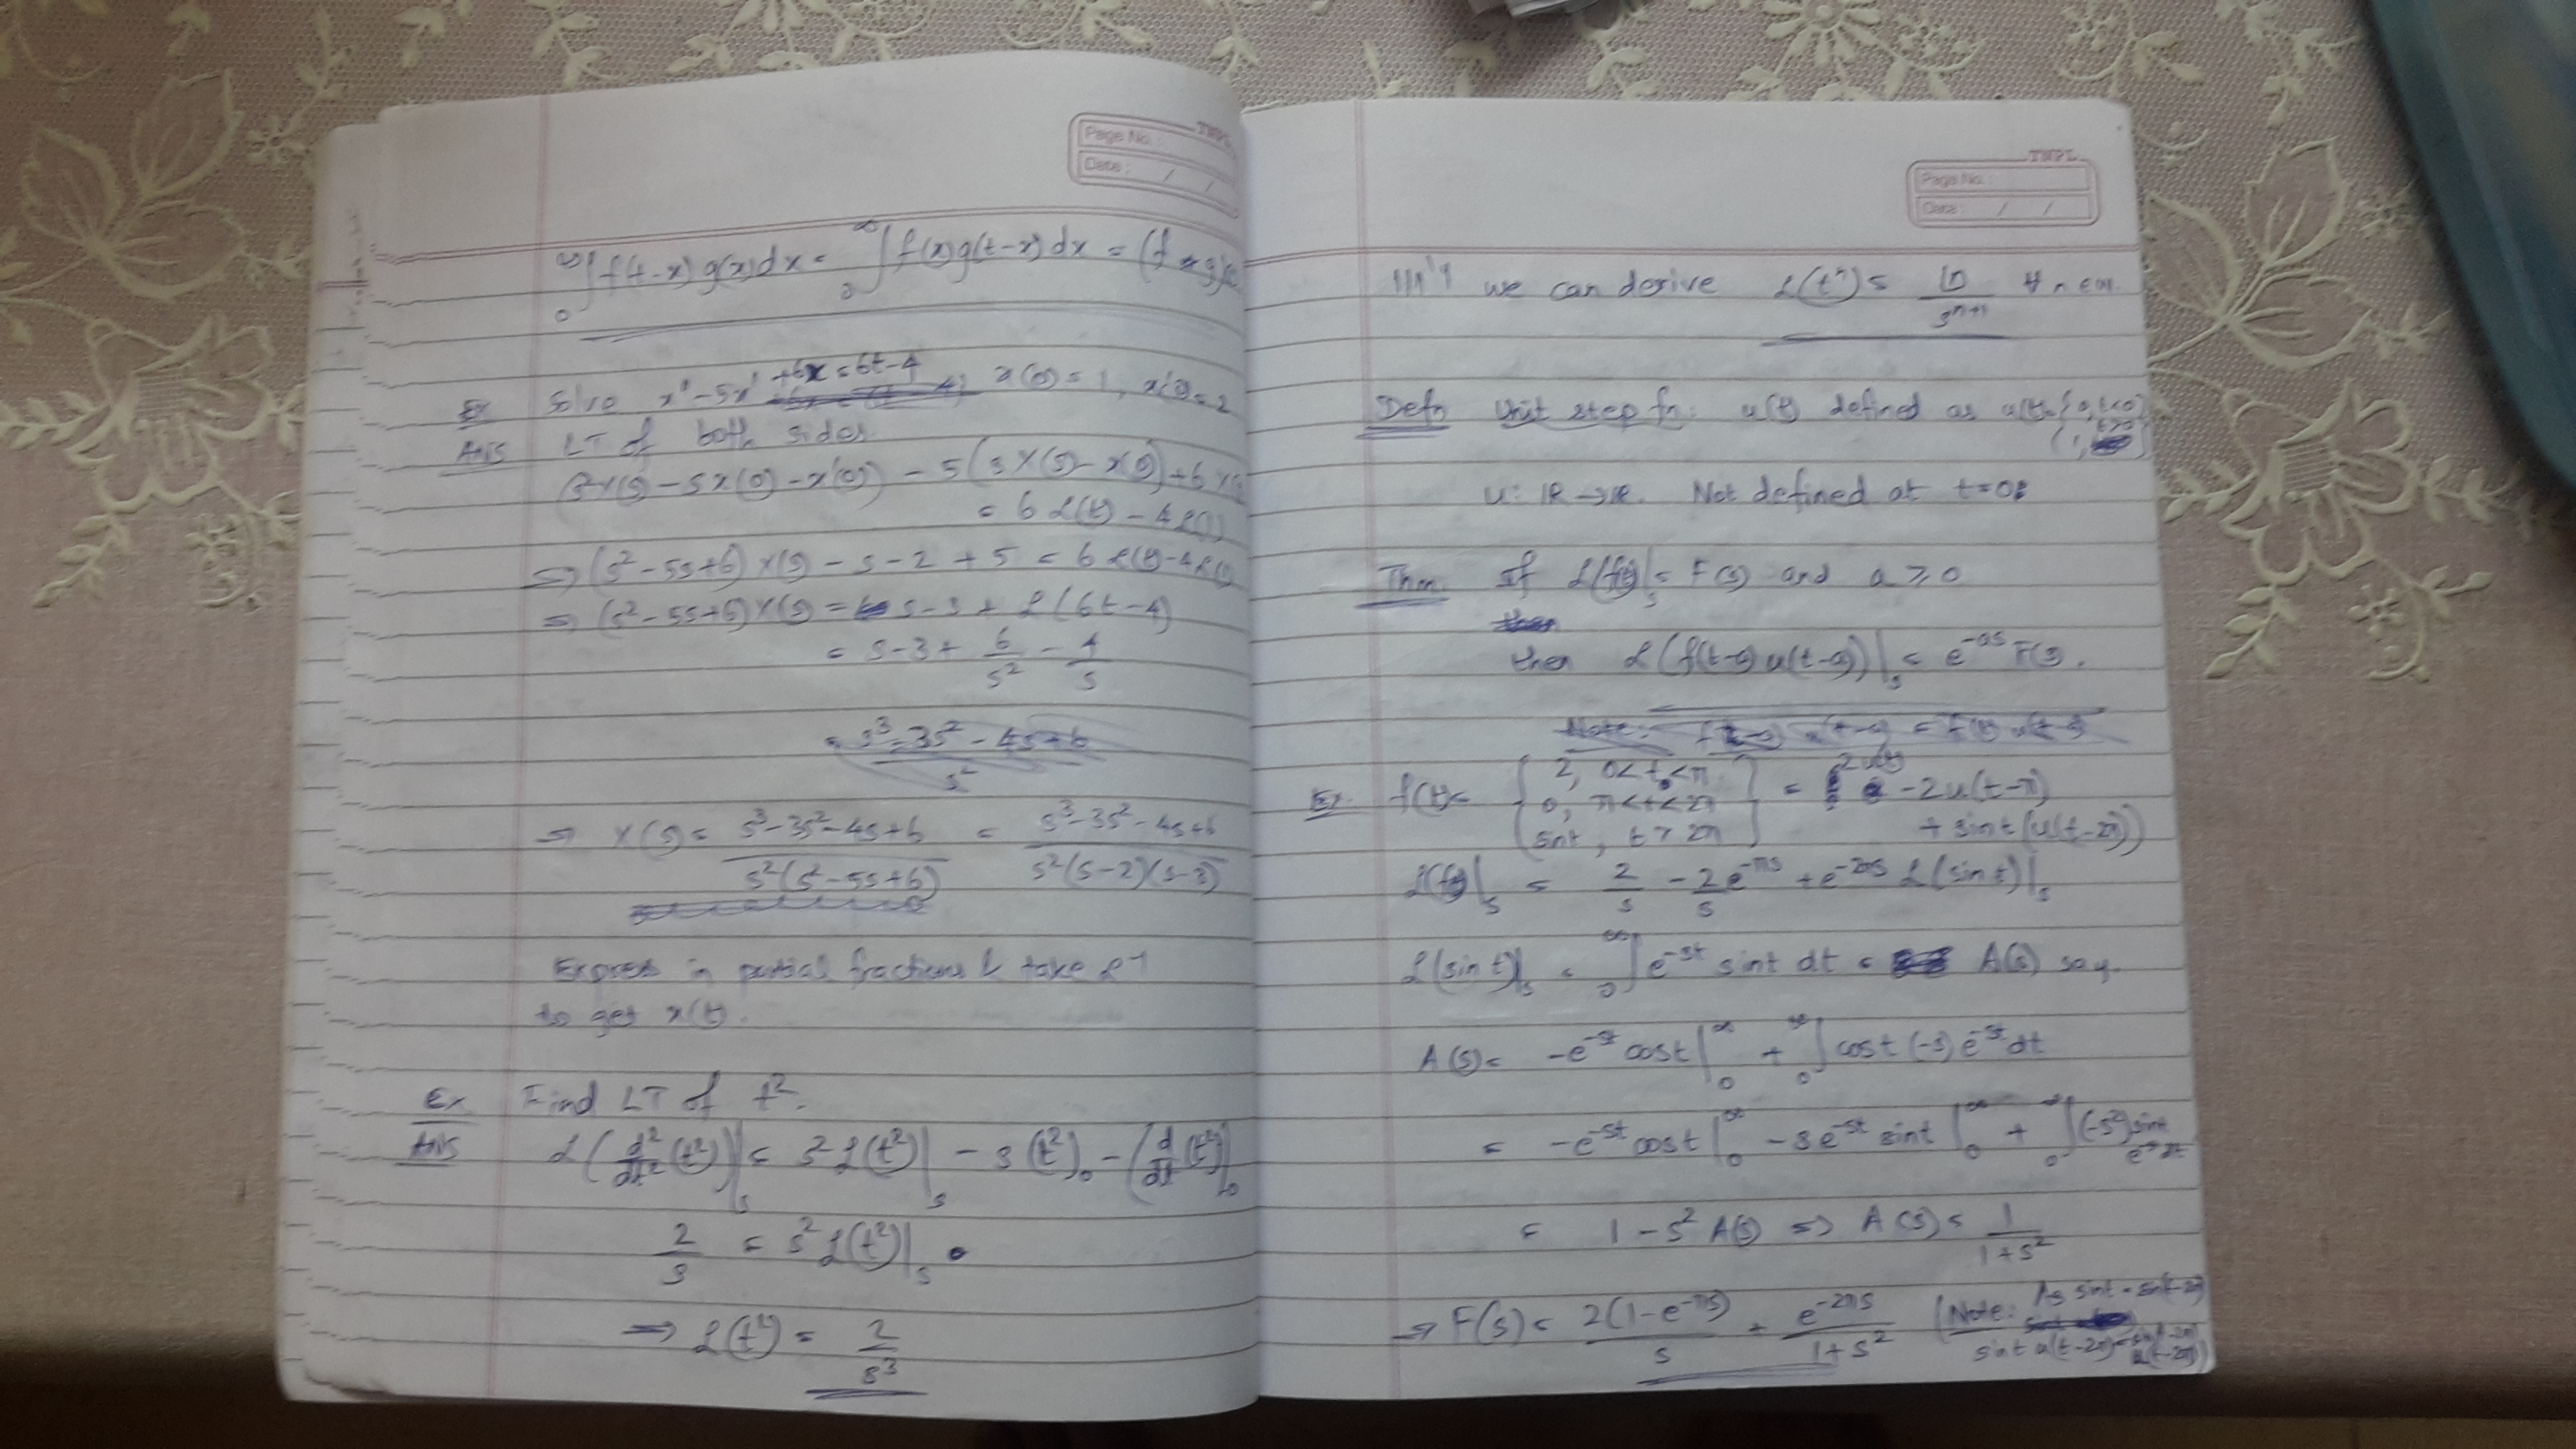 TNPL
Page No.:
Date: / /
₀∫^∞ f(t-x) g(x) dx = ₀∫^∞ f(x) g(t-x) dx = (f * g)(t)
Ex Solve x'' - 5x' + 6x = 6t - 4 x(0) = 1, x'(0) = 2
Ans LT of both sides.
(s²X(s) - sx(0) - x'(0)) - 5(sX(s) - x(0)) + 6X(s)
= 6 ℒ(t) - 4ℒ(1)
⇒ (s² - 5s + 6) X(s) - s - 2 + 5 = 6 ℒ(t) - 4ℒ(1)
⇒ (s² - 5s + 6) X(s) = s - 3 + ℒ(6t - 4)
= s - 3 + 6/s² - 4/s
= (s³ - 3s² - 4s + 6)/s²
⇒ X(s) = (s³ - 3s² - 4s + 6)/(s²(s² - 5s + 6)) = (s³ - 3s² - 4s + 6)/(s²(s-2)(s-3))
Express in partial fractions & take ℒ⁻¹
to get x(t).
Ex Find LT of t².
Ans ℒ(d²/dt² (t²))|s = s² ℒ(t²)|s - s(t²)₀ - (d/dt (t²))|₀
2/s = s² ℒ(t²)|s
⇒ ℒ(t²) = 2/s³
TNPL
Page No.
Date: / /
|||ly we can derive ℒ(tⁿ) = |n/sⁿ⁺¹ ∀ n ∈ ℕ.
Defn Unit step fn: u(t) defined as u(t) = {0, t<0
{1, t>0
u: ℝ → ℝ. Not defined at t=0.
Thm. If ℒ(f(t))|s = F(s) and a ⩾ 0
then ℒ(f(t-a) u(t-a))|s = e^-as F(s).
Note: f(t-a) u(t-a) = f(t) u(t-a)
Ex. f(t) = {2, 0<t<π; 0, π<t<2π; sint, t>2π} = 2u(t) - 2u(t-π)
+ sint (u(t-2π))
ℒ(f(t))|s = 2/s - 2/s e^-πs + e^-2πs ℒ(sin t)|s
ℒ(sin t)|s = ₀∫^∞ e^-st sint dt = A(s) say.
A(s) = -e^-st cost |₀^∞ + ₀∫^∞ cost (-s) e^-st dt
= -e^-st cost |₀^∞ - s e^-st sint |₀^∞ + ₀∫^∞ (-s²) sint e^-st dt
= 1 - s² A(s) ⇒ A(s) = 1/(1+s²)
⇒ F(s) = 2(1-e^-πs)/s + e^-2πs/(1+s²) (Note: As sint = sin(t-2π)
sint u(t-2π) = sin(t-2π) u(t-2π))